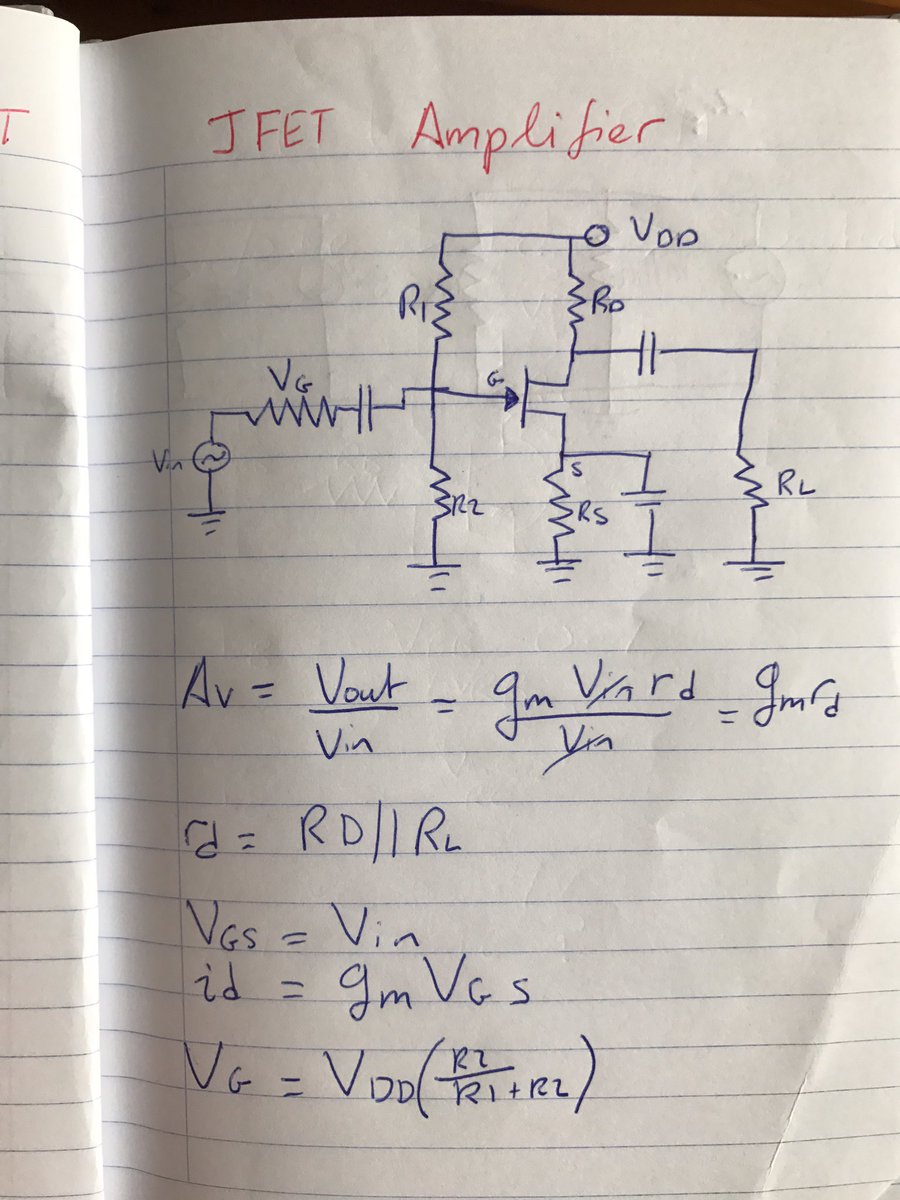 T
JFET Amplifier
VDD
R1
RD
VG
G
Vin
S
R2
RS
RL
Av = Vout / Vin = gm Vin rd / Vin = gmrd
rd = RD || RL
VGS = Vin
id = gm VGS
VG = VDD(R2 / R1 + R2)